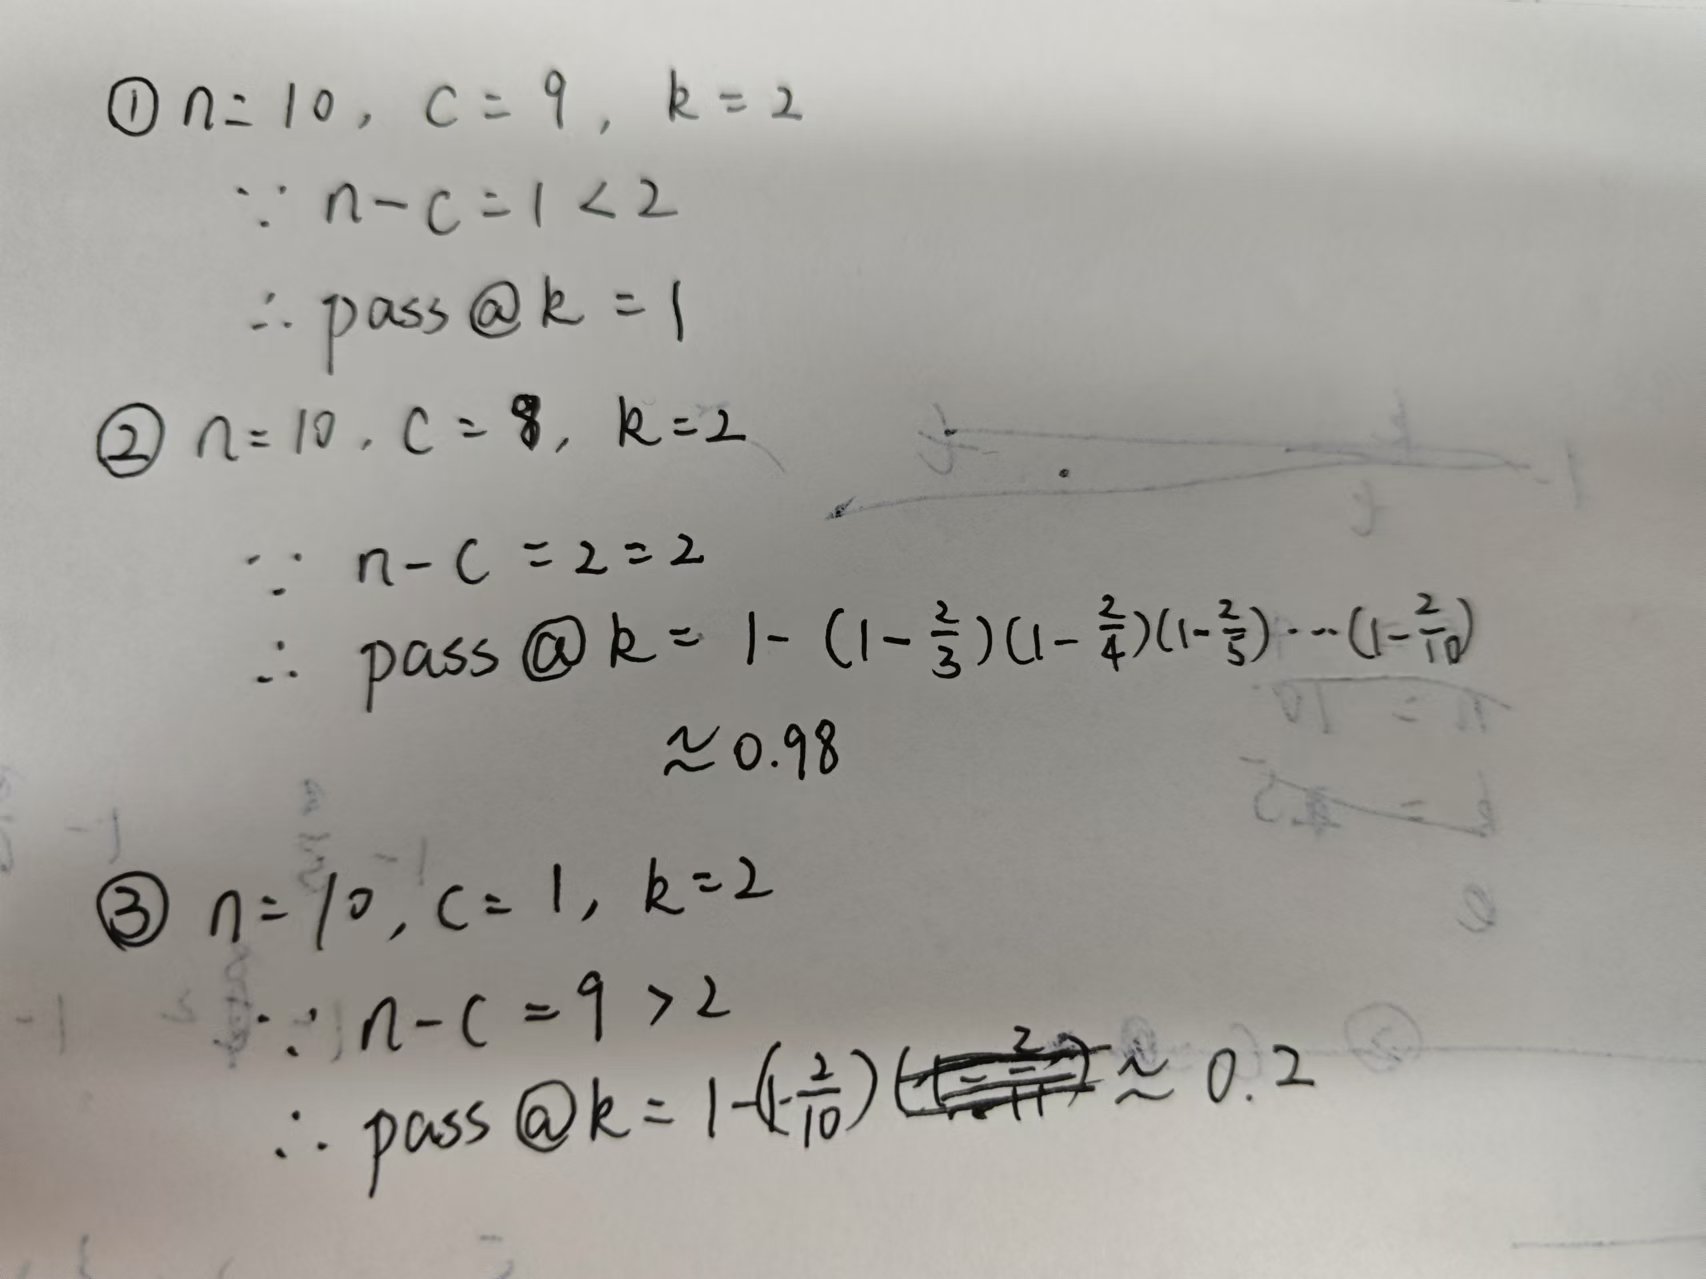 ① n=10, c=9, k=2
∵ n-c=1<2
∴ pass@k=1
② n=10, c=8, k=2
∵ n-c=2=2
∴ pass@k=1-(1-2/3)(1-2/4)(1-2/5)···(1-2/10)
≈0.98
③ n=10, c=1, k=2
∵ n-c=9>2
∴ pass@k=1-(1-2/10)≈0.2